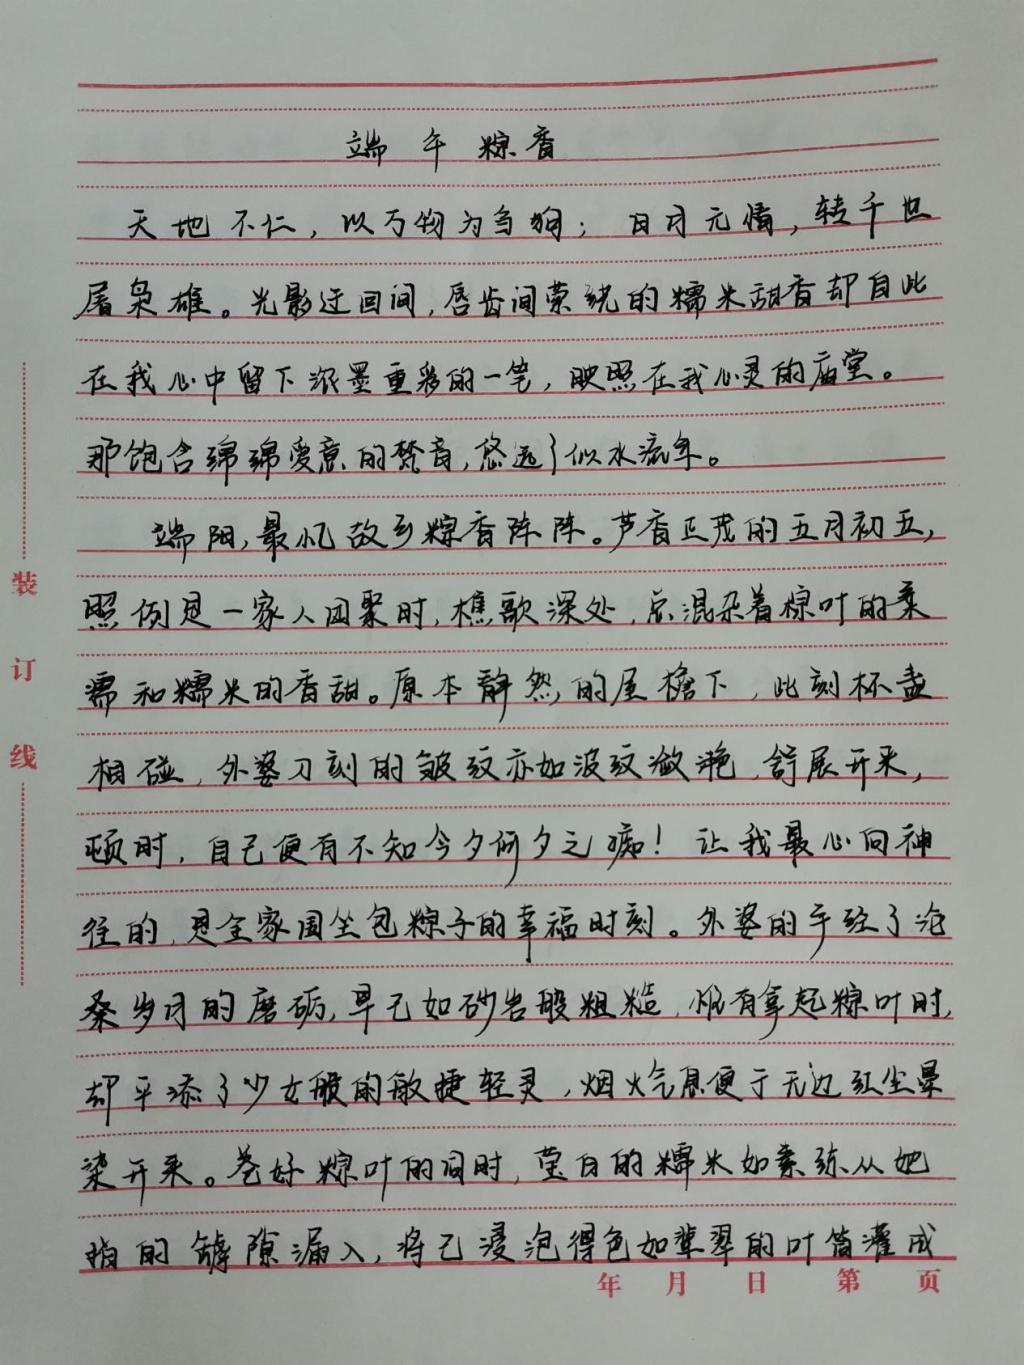 端午粽香
天地不仁，以万物为刍狗；日月无情，转千世
屠枭雄。光影迂回间，唇齿间萦绕的糯米甜香却自此
在我心中留下浓墨重彩的一笔，映照在我心灵的庙堂。
那饱含绵绵爱意的梵音，悠远了似水流年。
端阳，最忆故乡粽香阵阵。芦香正茂的五月初五，
照例是一家人团聚时，樵歌深处，总混杂着粽叶的柔
濡和糯米的香甜。原本静然的屋檐下，此刻杯盏
相碰，外婆刀刻的皱纹亦如波纹潋滟，舒展开来，
顿时，自己便有不知今夕何夕之痴！让我最心向神
往的，是全家围坐包粽子的幸福时刻。外婆的手经了沧
桑岁月的磨砺，早已如砂岩般粗糙，惟有拿起粽叶时，
却平添了少女般的敏捷轻灵，烟火气息便于无边红尘晕
染开来。卷好粽叶的同时，莹白的糯米如素练从她
指的罅隙漏入，将已浸泡得色如翠的叶筒灌成
装
订
线
年 月 日 第 页